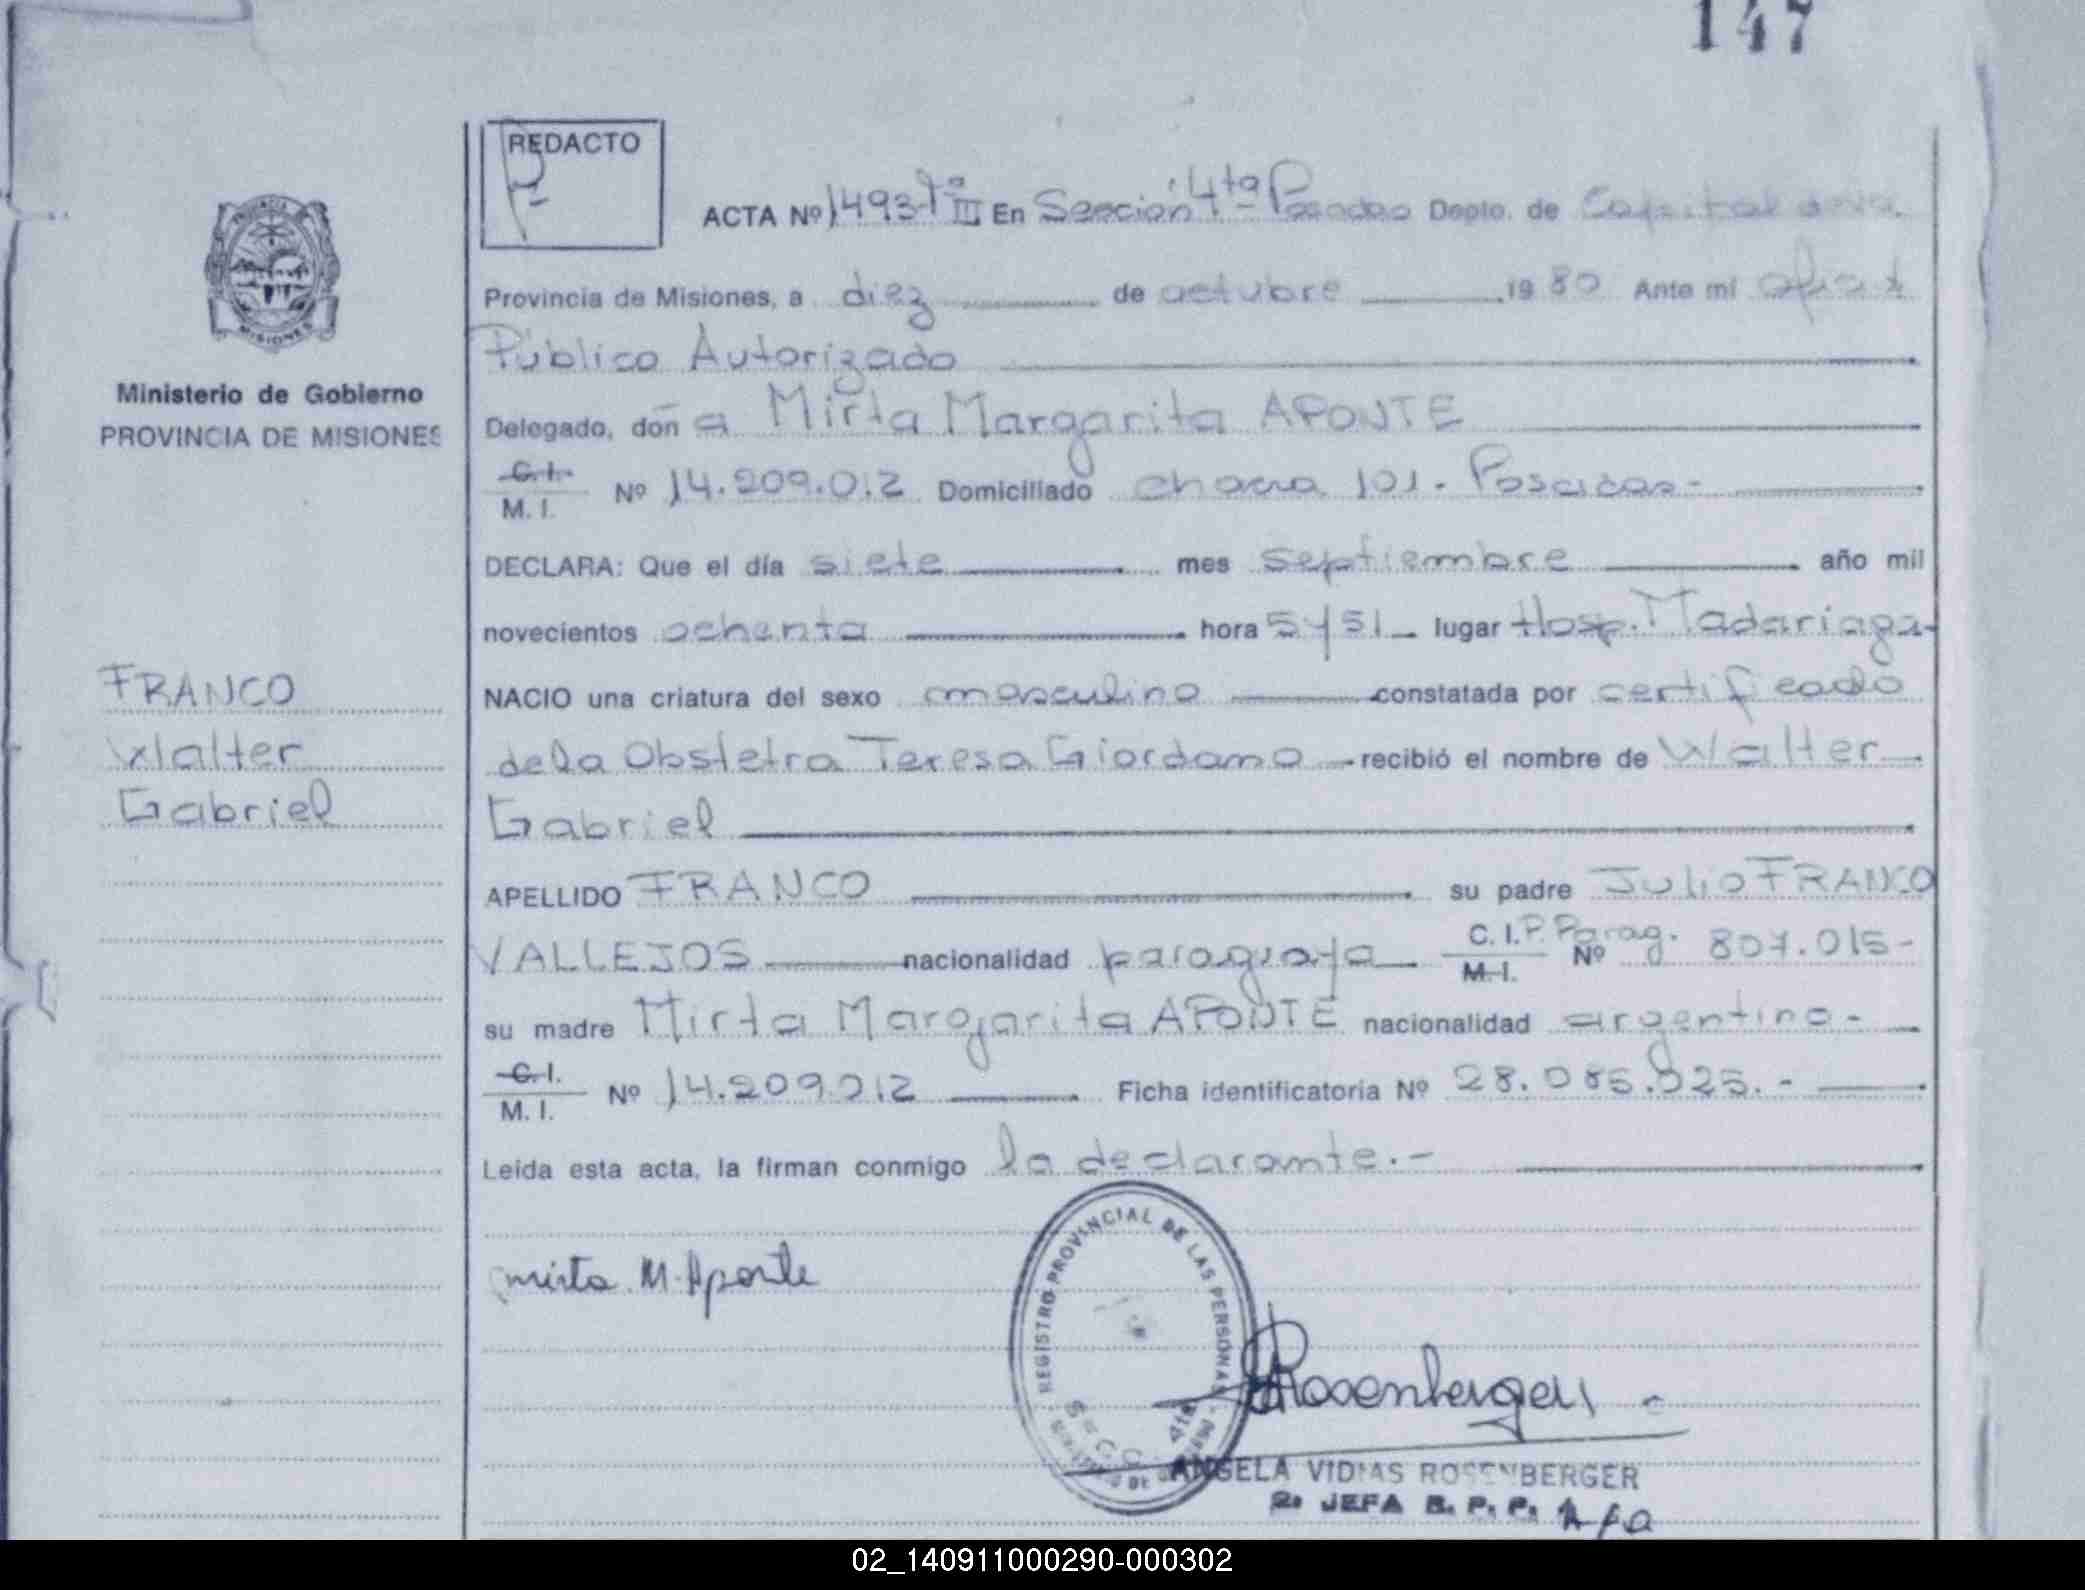 147
REDACTO
ACTA Nº 1493 Tº III En Sección 4ta Posadas Depto. de Capital
Provincia de Misiones, a diez de octubre 1980 Ante mí
Público Autorizado
Delegado, don a Mirta Margarita APONTE
C. I.
M. I. Nº 14.209.012 Domiciliado chacra 101. Posadas-
DECLARA: Que el día siete mes septiembre año mil
novecientos ochenta hora 5y51 lugar Hosp. Madariaga-
NACIO una criatura del sexo masculino constatada por certificado
de la Obstetra Teresa Giordano recibió el nombre de Walter
Gabriel
APELLIDO FRANCO su padre Julio FRANCO
VALLEJOS nacionalidad paraguaya C. I. P. Parag. Nº 807.015-
M. I.
su madre Mirta Margarita APONTE nacionalidad argentina-
C. I.
M. I. Nº 14.209.012 Ficha identificatoria Nº 28.085.025.-
Leída esta acta, la firman conmigo la declarante.-
Mirta M. Aponte
REGISTRO PROVINCIAL DE LAS PERSONAS
Rosenberger
ANGELA VIDMAS ROSENBERGER
2º JEFA R. P. P.
PROVINCIA DE
MISIONES
Ministerio de Gobierno
PROVINCIA DE MISIONES
FRANCO
Walter
Gabriel
02_140911000290-000302